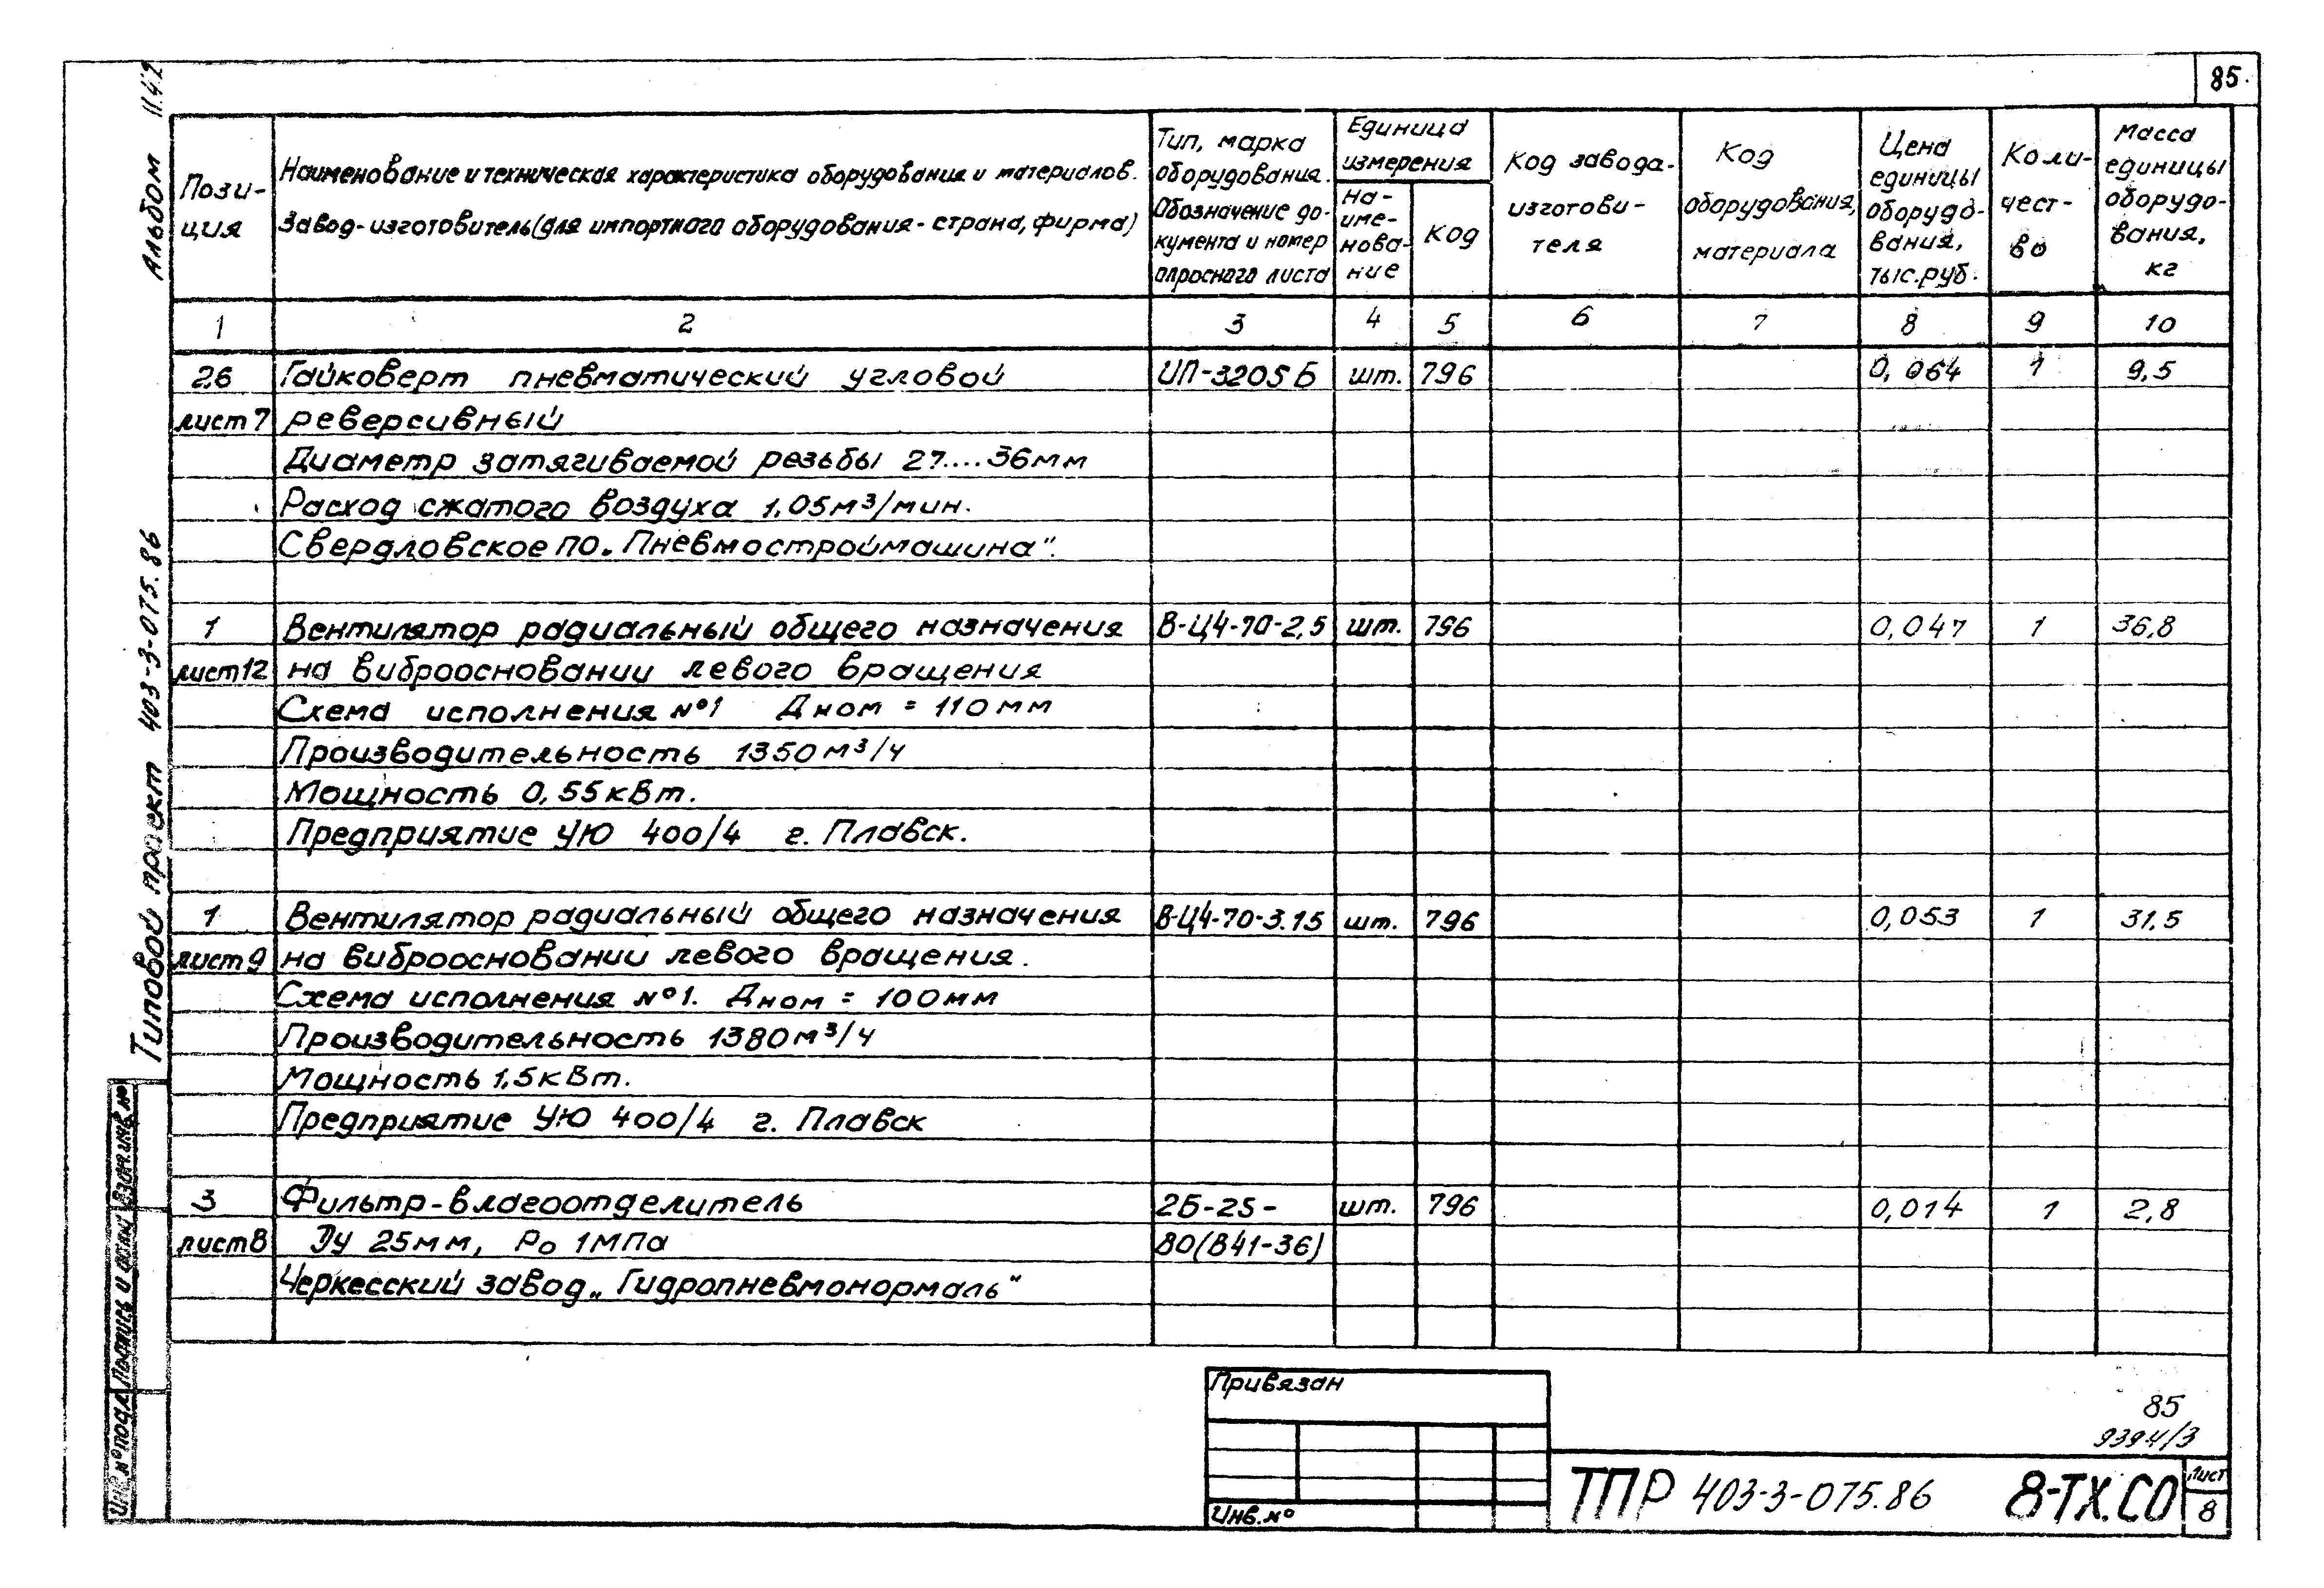 85
Альбом II.4.2
Типовой проект 403-3-075.86
Пози-
ция
Наименование и техническая характеристика оборудования и материалов.
Завод-изготовитель (для импортного оборудования - страна, фирма)
Тип, марка
оборудования.
Обозначение до-
кумента и номер
опросного листа
Единица
измерения
На-
име-
нова-
ние
Код
Код завода-
изготови-
теля
Код
оборудования,
материала
Цена
единицы
оборудо-
вания,
тыс.руб.
Коли-
чест-
во
Масса
единицы
оборудо-
вания,
кг
1 2 3 4 5 6 7 8 9 10
26 Гайковерт пневматический угловой ИП-3205Б шт. 796 0,064 1 9,5
лист 7 реверсивный
Диаметр затягиваемой резьбы 27....36мм
Расход сжатого воздуха 1,05м³/мин.
Свердловское ПО „Пневмостроймашина".
1 Вентилятор радиальный общего назначения В-Ц4-70-2,5 шт. 796 0,047 1 36,8
лист 12 на виброосновании левого вращения
Схема исполнения №1 Дном = 110мм
Производительность 1350м³/ч
Мощность 0,55кВт.
Предприятие УЮ 400/4 г. Плавск.
1 Вентилятор радиальный общего назначения В-Ц4-70-3.15 шт. 796 0,053 1 31,5
лист 9 на виброосновании левого вращения.
Схема исполнения №1. Дном = 100мм
Производительность 1380м³/ч
Мощность 1,5кВт.
Предприятие УЮ 400/4 г. Плавск
3 Фильтр-влагоотделитель 2Б-25- шт. 796 0,014 1 2,8
лист 8 Ду 25мм, Ро 1МПа 80(В41-36)
Черкесский завод „Гидропневмонормаль"
Взам.инв.№
Подпись и дата
Инв.№ подл.
Привязан
Инв.№
85
9394/3
ТПР 403-3-075.86 8-ТХ.СО
Лист
8